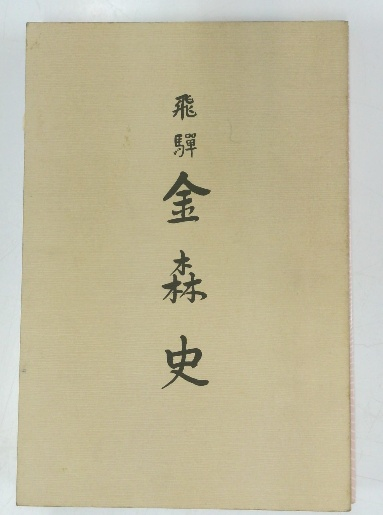 飛驒
金森史